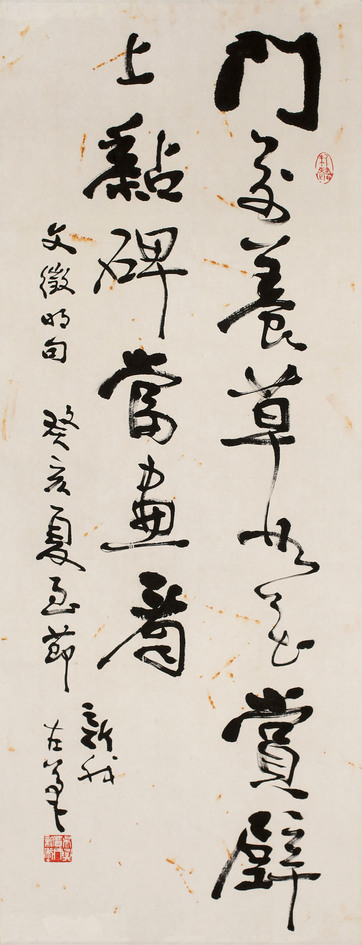 門前養草如花賞壁
上黏碑當畫看
文徵明句 癸亥夏至節
新我
左筆